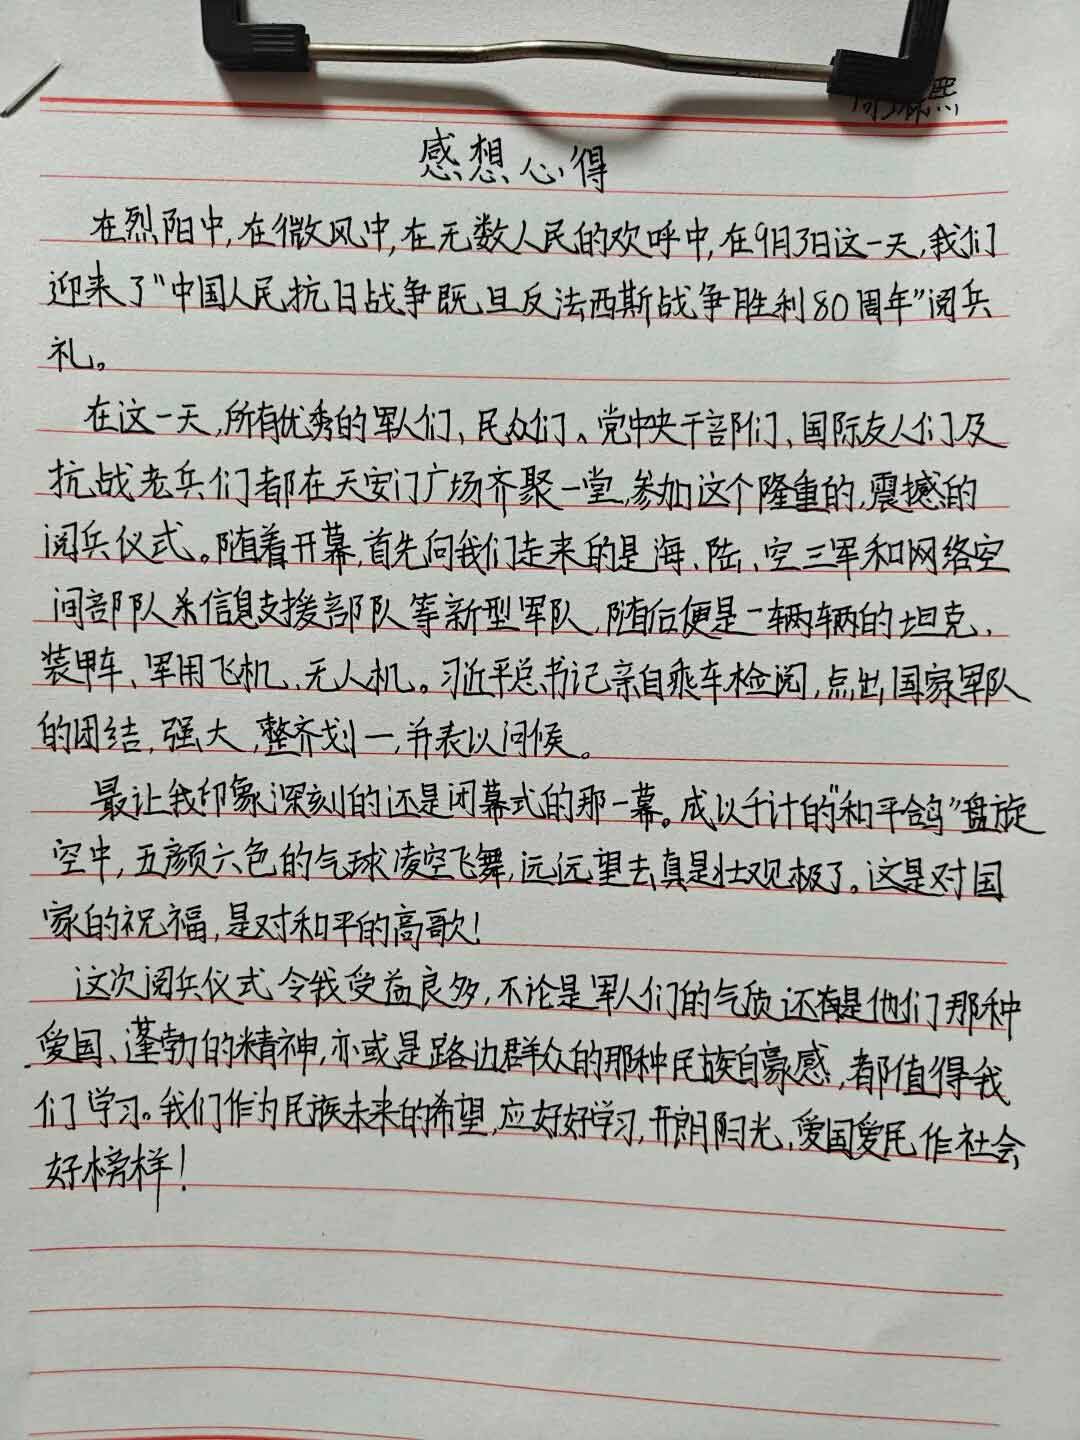 熙
感想心得
在烈阳中,在微风中,在无数人民的欢呼中,在9月3日这一天,我们
迎来了“中国人民抗日战争既旦反法西斯战争胜利80周年”阅兵
礼。
在这一天,所有优秀的军人们、民众们、党中央干部们、国际友人们及
抗战老兵们都在天安门广场齐聚一堂,参加这个隆重的,震撼的
阅兵仪式。随着开幕,首先向我们走来的是海、陆、空三军和网络空
间部队杀信息支援部队等新型军队,随后便是一辆辆的坦克、
装甲车、军用飞机、无人机。习近平总书记亲自乘车检阅,点出国家军队
的团结,强大,整齐划一,并表以问候。
最让我印象深刻的还是闭幕式的那一幕。成以千计的“和平鸽”盘旋
空中,五颜六色的气球凌空飞舞,远远望去真是壮观极了。这是对国
家的祝福,是对和平的高歌!
这次阅兵仪式令我受益良多,不论是军人们的气质还是他们那种
爱国、蓬勃的精神,亦或是路边群众的那种民族自豪感,都值得我
们学习。我们作为民族未来的希望,应好好学习,开朗阳光,爱国爱民作社会
好榜样!